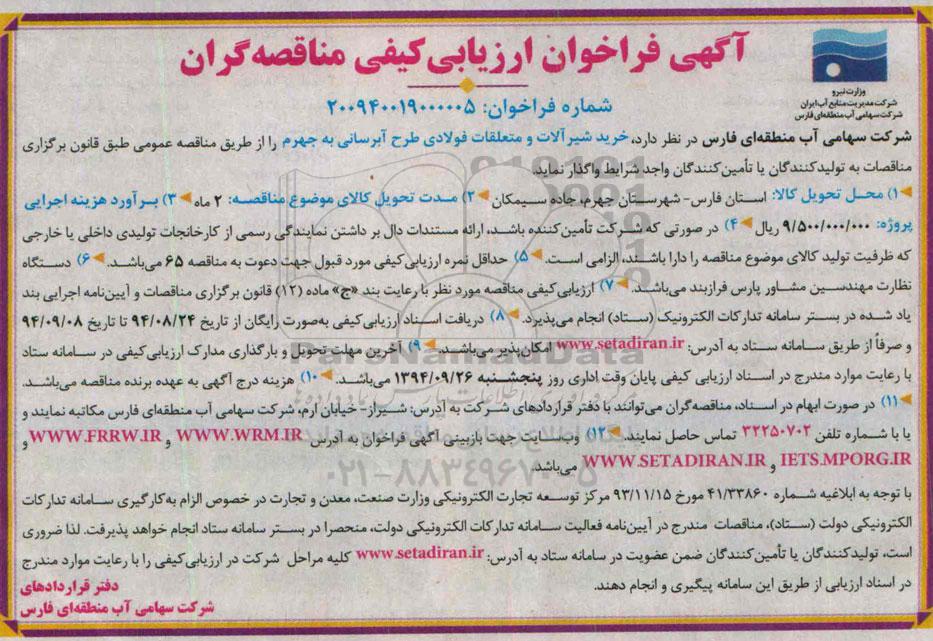 آگهی فراخوان ارزیابی کیفی مناقصه گران
وزارت نیرو
شرکت مدیریت منابع آب ایران
شرکت سهامی آب منطقه‌ای فارس
شماره فراخوان: ۲۰۰۹۴۰۰۱۹۰۰۰۰۰۵
شرکت سهامی آب منطقه‌ای فارس در نظر دارد، خرید شیرآلات و متعلقات فولادی طرح آبرسانی به جهرم را از طریق مناقصه عمومی طبق قانون برگزاری
مناقصات به تولیدکنندگان یا تأمین‌کنندگان واجد شرایط واگذار نماید.
۱) محل تحویل کالا: استان فارس- شهرستان جهرم، جاده سیمکان ۲) مدت تحویل کالای موضوع مناقصه: ۲ ماه ۳) برآورد هزینه اجرایی
پروژه: ۹/۵۰۰/۰۰۰/۰۰۰ ریال ۴) در صورتی که شرکت تأمین‌کننده باشد، ارائه مستندات دال بر داشتن نمایندگی رسمی از کارخانجات تولیدی داخلی یا خارجی
که ظرفیت تولید کالای موضوع مناقصه را دارا باشند، الزامی است. ۵) حداقل نمره ارزیابی کیفی مورد قبول جهت دعوت به مناقصه ۶۵ می‌باشد. ۶) دستگاه
نظارت مهندسین مشاور پارس فرازبند می‌باشد. ۷) ارزیابی کیفی مناقصه مورد نظر با رعایت بند «ج» ماده (۱۲) قانون برگزاری مناقصات و آیین‌نامه اجرایی بند
یاد شده در بستر سامانه تدارکات الکترونیک (ستاد) انجام می‌پذیرد. ۸) دریافت اسناد ارزیابی کیفی به‌صورت رایگان از تاریخ ۹۴/۰۸/۲۴ تا تاریخ ۹۴/۰۹/۰۸
و صرفاً از طریق سامانه ستاد به آدرس: www.setadiran.ir امکان‌پذیر می‌باشد. ۹) آخرین مهلت تحویل و بارگذاری مدارک ارزیابی کیفی در سامانه ستاد
با رعایت موارد مندرج در اسناد ارزیابی کیفی پایان وقت اداری روز پنجشنبه ۱۳۹۴/۰۹/۲۶ می‌باشد. ۱۰) هزینه درج آگهی به عهده برنده مناقصه می‌باشد.
۱۱) در صورت ابهام در اسناد، مناقصه‌گران می‌توانند با دفتر قراردادهای شرکت به آدرس: شیراز- خیابان ارم، شرکت سهامی آب منطقه‌ای فارس مکاتبه نمایند و
یا با شماره تلفن ۳۲۲۵۰۷۰۲ تماس حاصل نمایند. ۱۲) وب‌سایت جهت بازبینی آگهی فراخوان به آدرس WWW.WRM.IR و WWW.FRRW.IR و
IETS.MPORG.IR و WWW.SETADIRAN.IR می‌باشد.
با توجه به ابلاغیه شماره ۴۱/۳۳۸۶۰ مورخ ۹۳/۱۱/۱۵ مرکز توسعه تجارت الکترونیکی وزارت صنعت، معدن و تجارت در خصوص الزام به‌کارگیری سامانه تدارکات
الکترونیکی دولت (ستاد)، مناقصات مندرج در آیین‌نامه فعالیت سامانه تدارکات الکترونیکی دولت، منحصرا در بستر سامانه ستاد انجام خواهد پذیرفت. لذا ضروری
است، تولیدکنندگان یا تأمین‌کنندگان ضمن عضویت در سامانه ستاد به آدرس: www.setadiran.ir کلیه مراحل شرکت در ارزیابی کیفی را با رعایت موارد مندرج
در اسناد ارزیابی از طریق این سامانه پیگیری و انجام دهند.
دفتر قراردادهای
شرکت سهامی آب منطقه‌ای فارس
ParsNamadData
۰۲۱-۸۸۳۴۹۶۷۰-۵